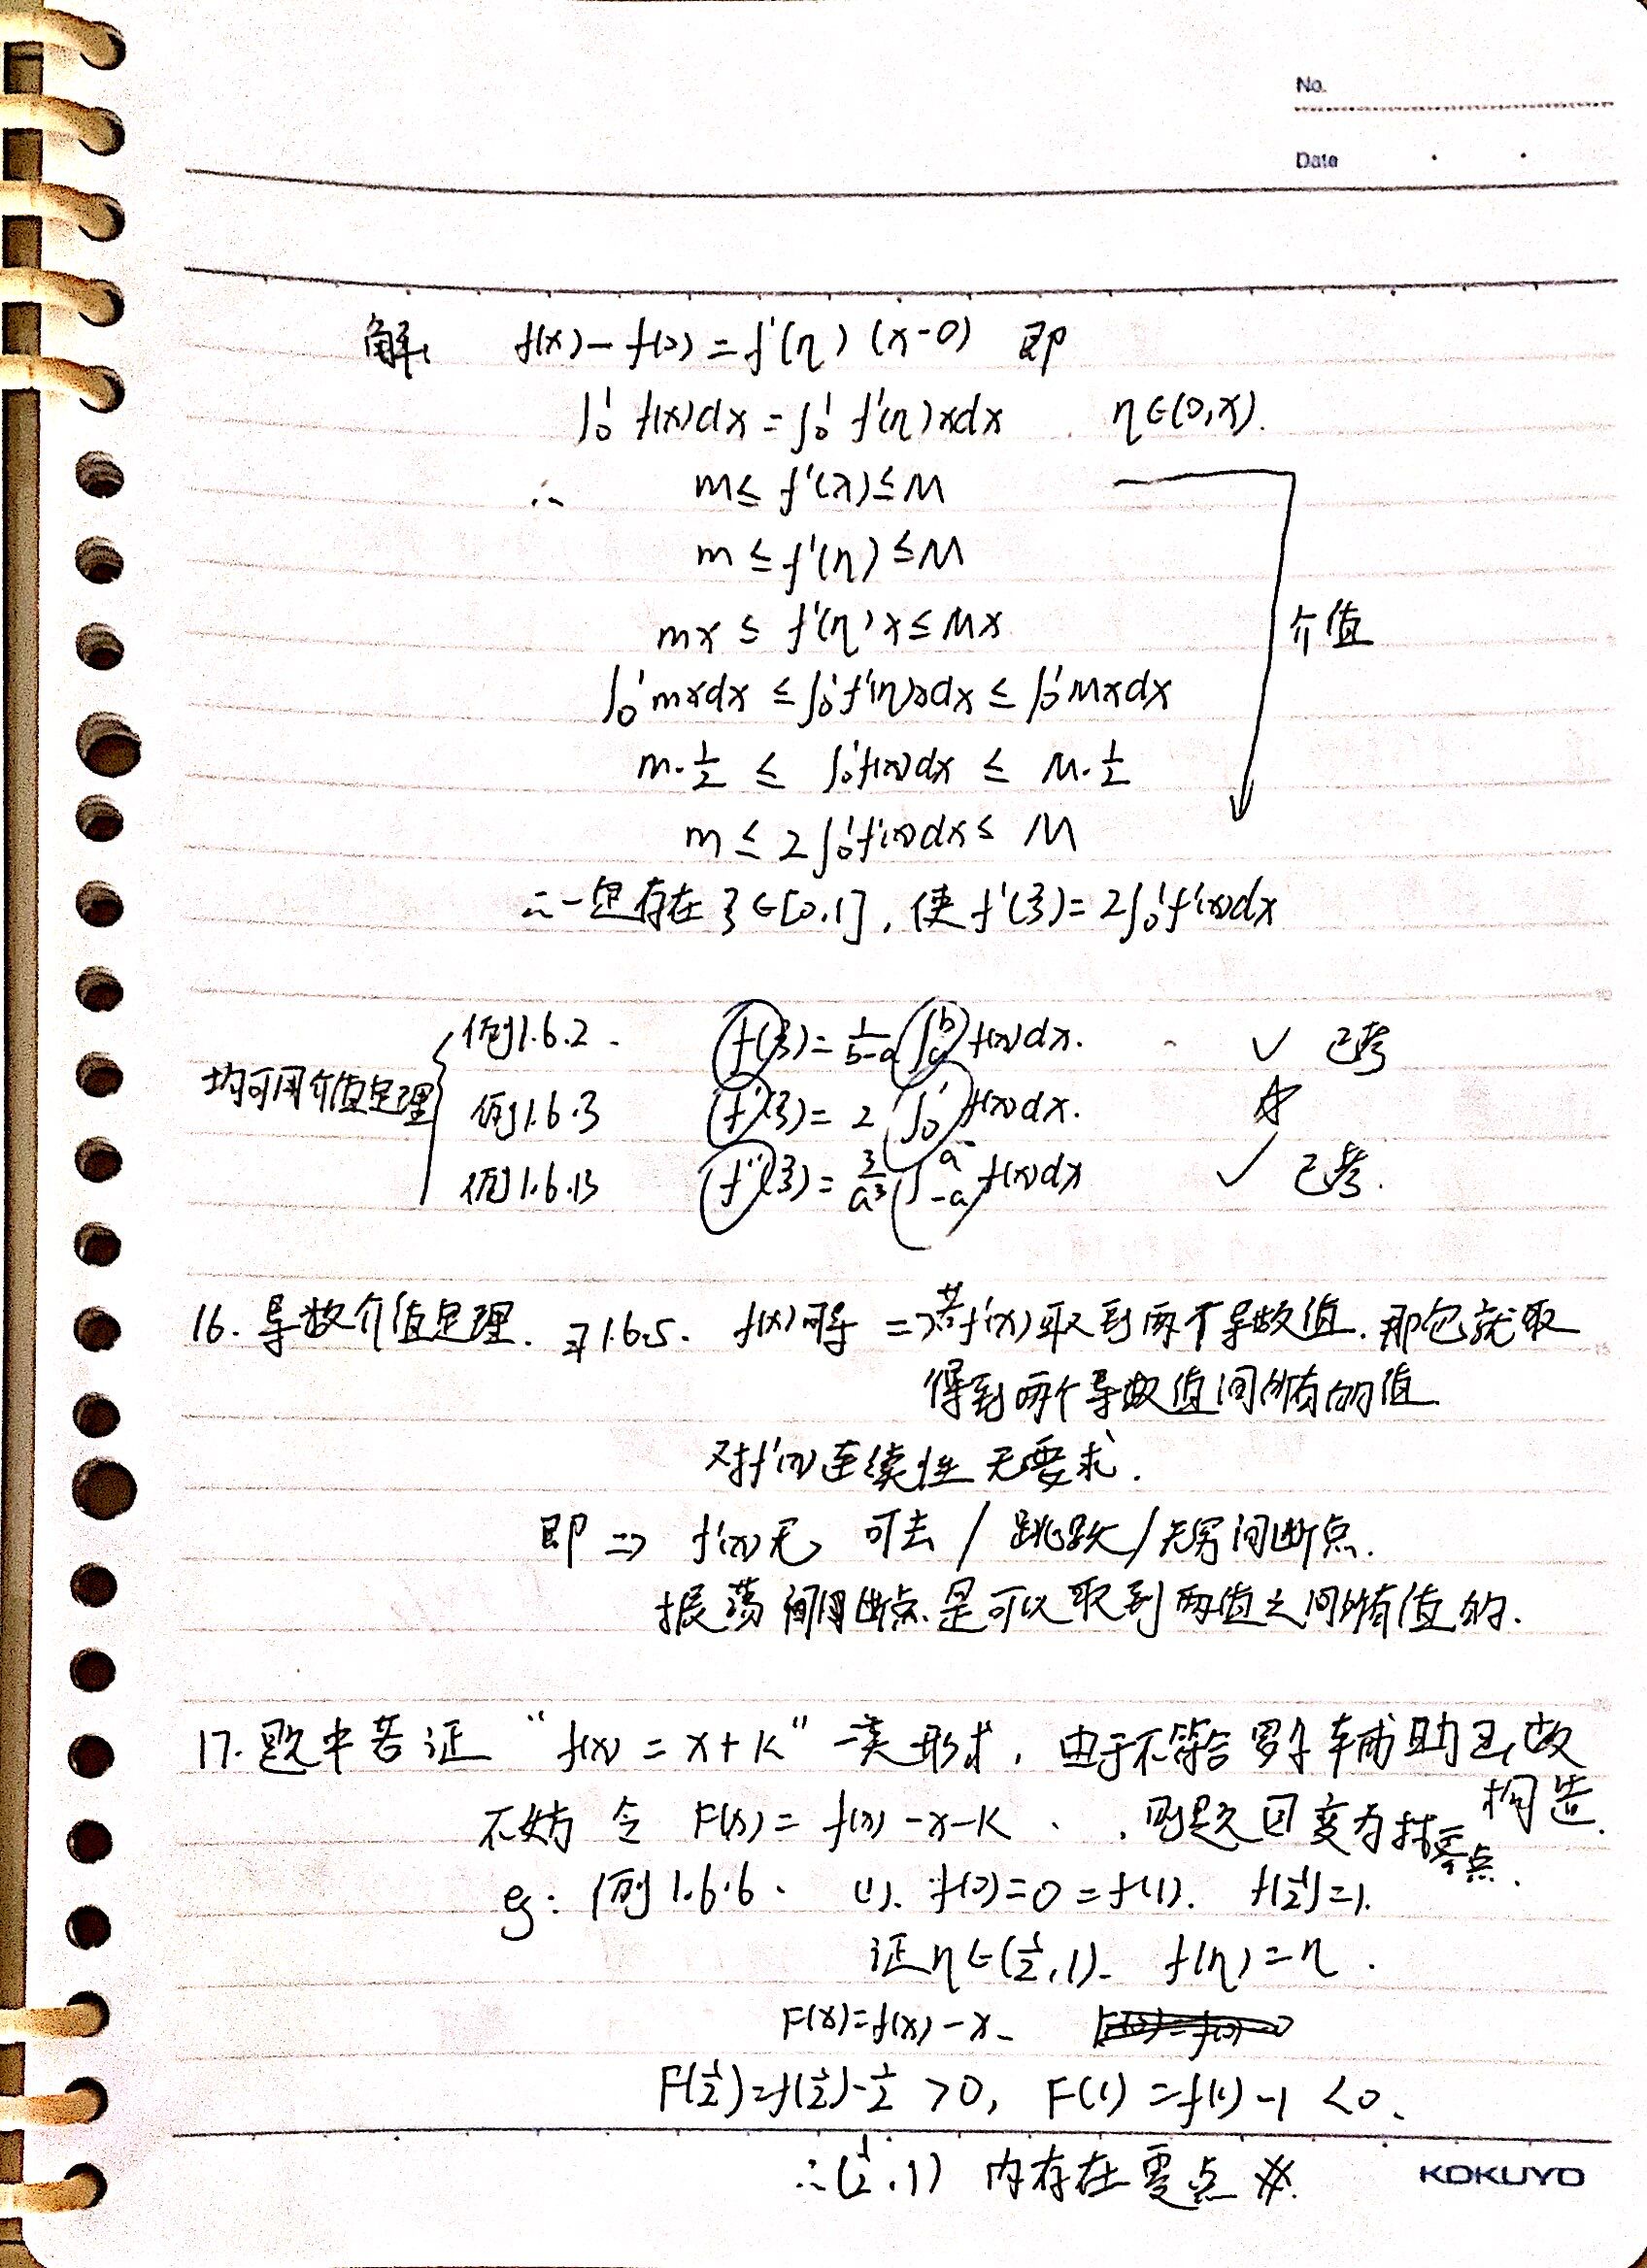 No.
Date
解: f(x)-f(0)=f'(η)(x-0) 即
∫₀¹ f(x)dx=∫₀¹ f'(η)xdx η∈(0,x).
∴ m≤f'(x)≤M
m≤f'(η)≤M
mx≤f'(η)x≤Mx
介值
∫₀¹mxdx≤∫₀¹f'(η)xdx≤∫₀¹Mxdx
m·1/2 ≤ ∫₀¹f(x)dx ≤ M·1/2
m≤2∫₀¹f(x)dx≤M
∴一定存在ξ∈[0,1],使f'(ξ)=2∫₀¹f(x)dx
均可用介值定理
例1.6.2. f(ξ)=1/(b-a)∫ₐᵇf(x)dx. ✓ 已考
例1.6.3 f'(ξ)=2∫₀¹f(x)dx. ☆
例1.6.13 f''(ξ)=3/a³∫₋ₐᵃf(x)dx ✓ 已考.
16.导数介值定理.习1.6.5. f(x)可导=>若f'(x)取到两个导数值.那它就取
得到两个导数值间所有的值
对f'(x)连续性无要求.
即=>f'(x)无 可去/跳跃/无穷间断点.
振荡间断点是可以取到两值之间所有值的.
17.题中若证“f(x)=x+k”一类形式,由于不符合罗尔辅助函数
构造.
不妨令 F(x)=f(x)-x-k. 则题目变为找零点.
eg:例1.6.6. (1).f(0)=0=f(1). f(1/2)=1.
证η∈(1/2,1). f(η)=η.
F(x)=f(x)-x.
F(1/2)=f(1/2)-1/2>0, F(1)=f(1)-1<0.
∴(1/2,1)内存在零点 #.
KOKUYO